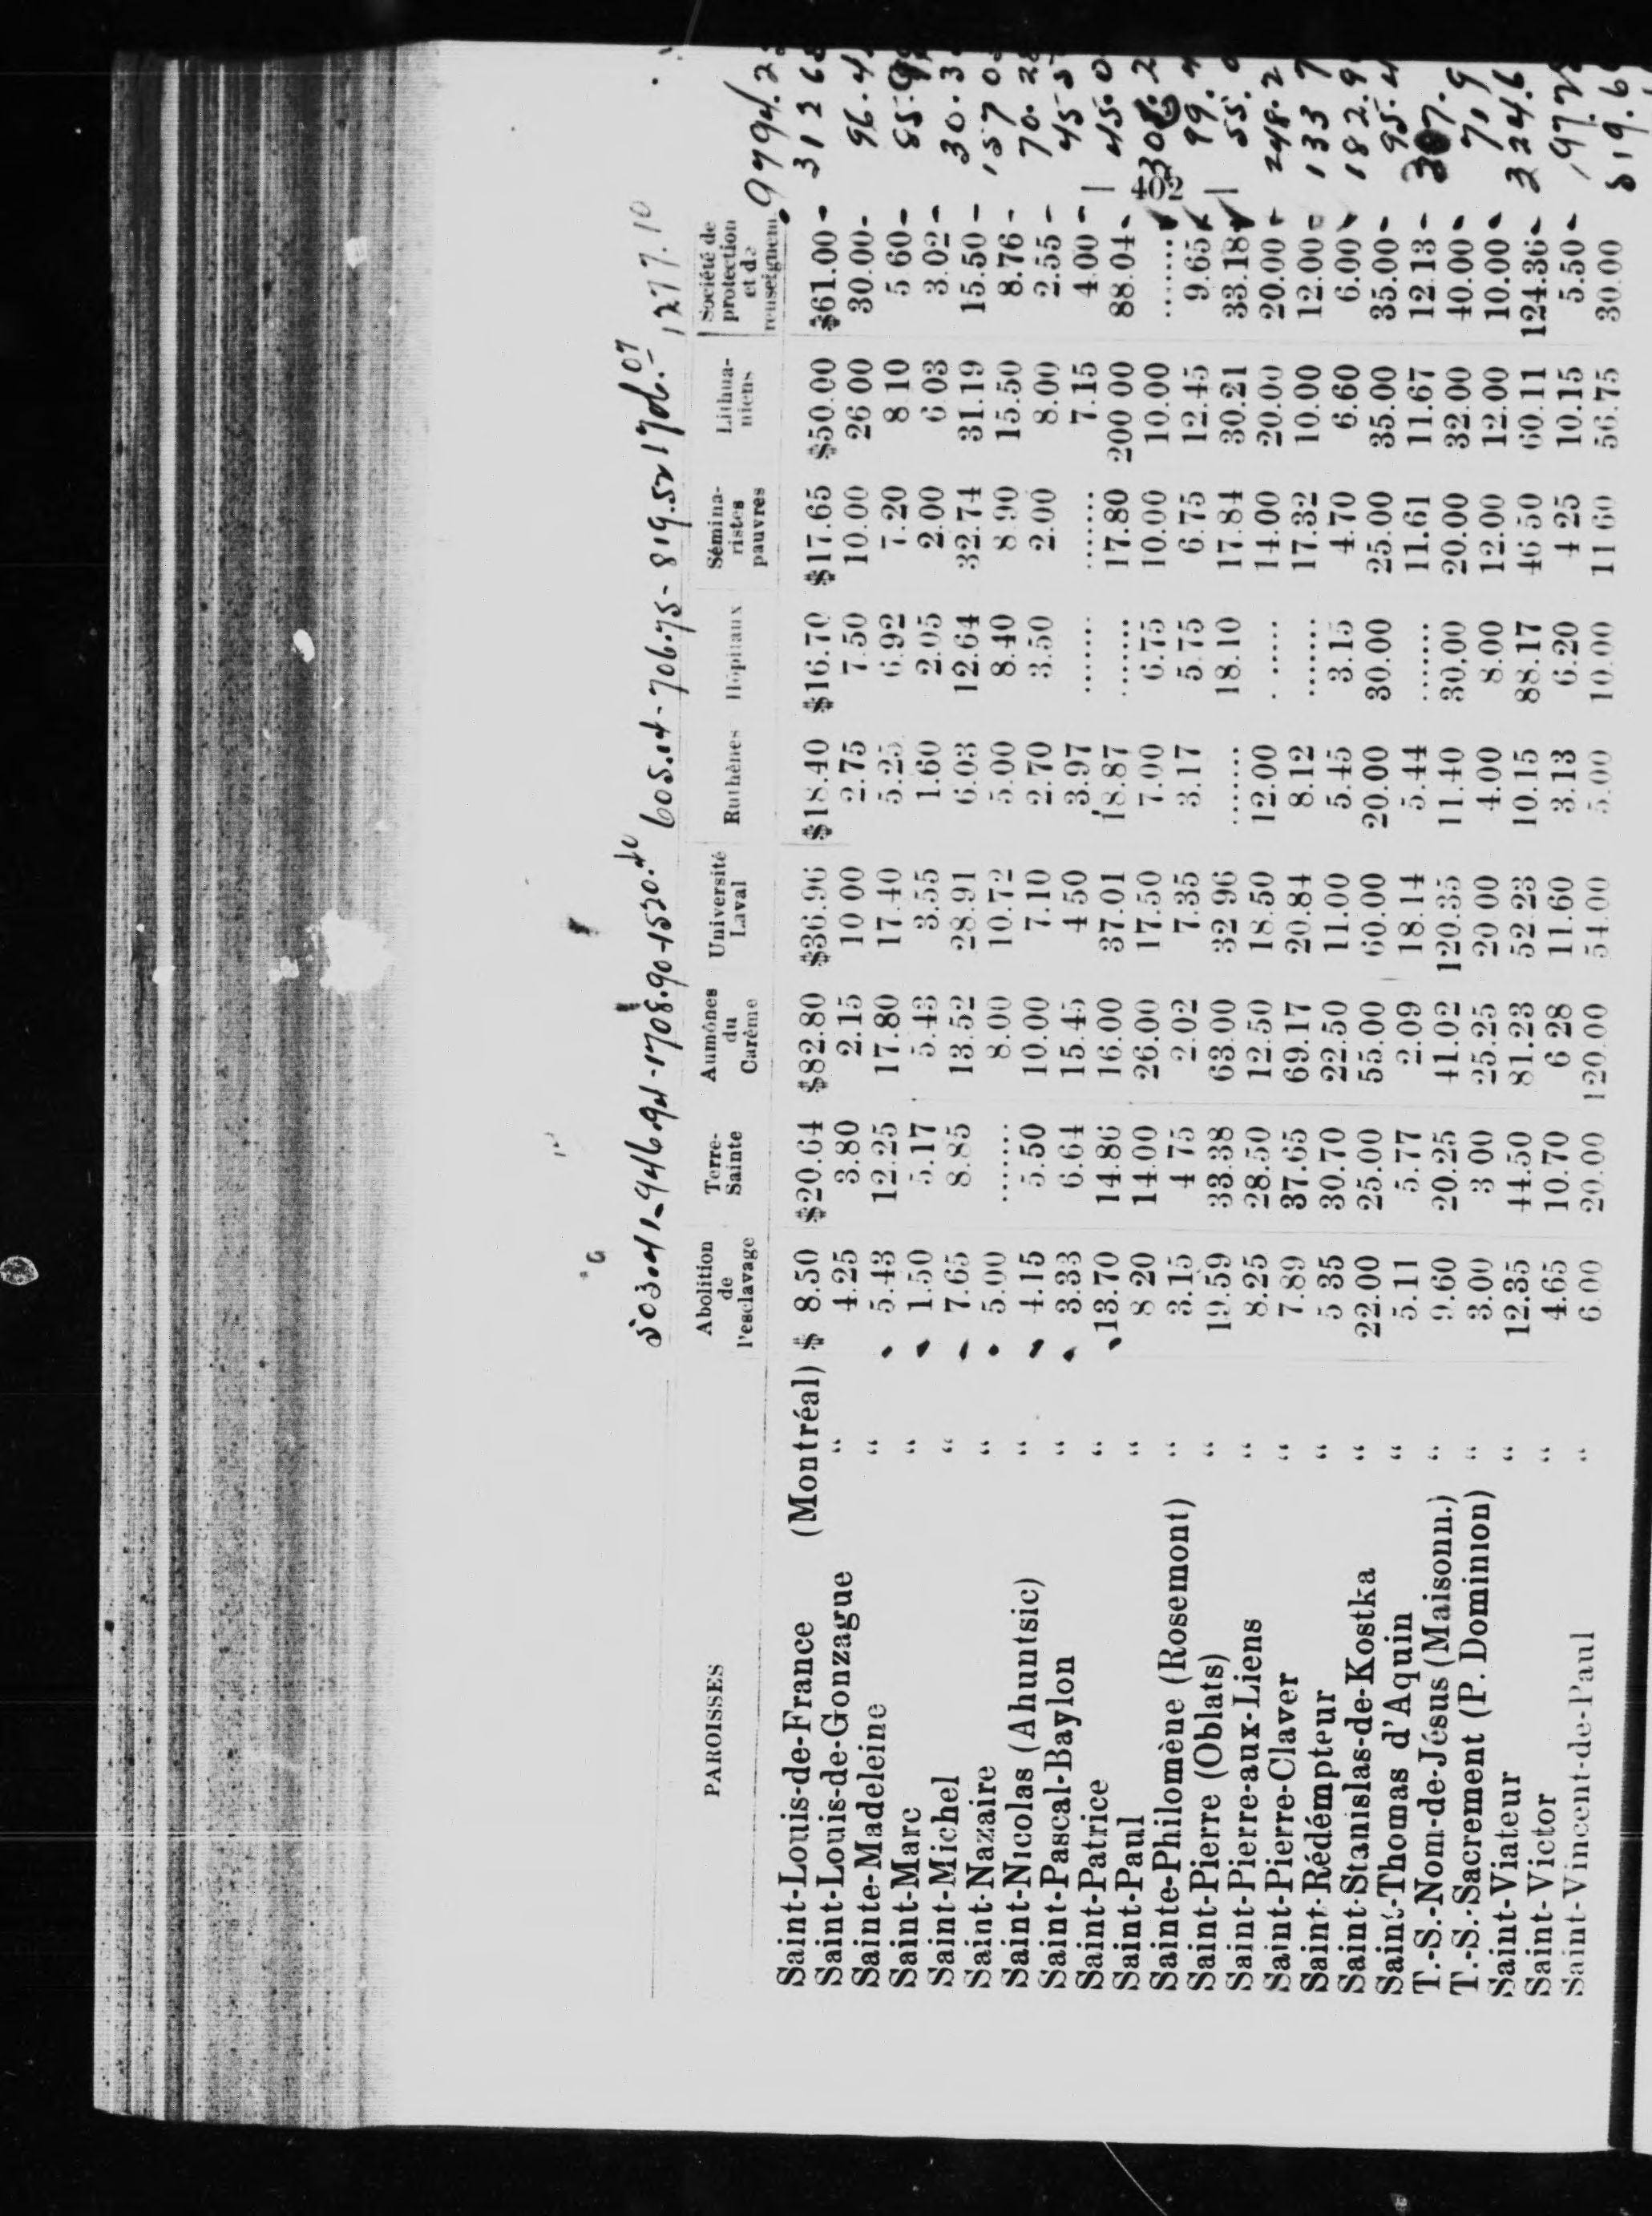 503.41-946.94-1708.90-1520.40 605.04-706.75-819.52 1706.07 1277.10
PAROISSES Abolition de l'esclavage Terre-Sainte Aumônes du Carême Université Laval Ruthènes Hôpitaux Sémina-ristes pauvres Lithua-niens Société de protection et de renseignem.
Saint-Louis-de-France (Montréal) $ 8.50 $20.64 $82.80 $36.96 $18.40 $16.70 $17.65 $50.00 $61.00
Saint-Louis-de-Gonzague “ 4.25 3.80 2.15 10 00 2.75 7.50 10.00 26 00 30.00
Sainte-Madeleine “ 5.43 12.25 17.80 17 40 5.25 6.92 7.20 8 10 5 60
Saint-Marc “ 1.50 5.17 5.43 3.55 1.60 2.05 2.00 6.03 3.02
Saint-Michel “ 7.65 8.85 13.52 28.91 6.03 12.64 32.74 31.19 15.50
Saint-Nazaire “ 5.00 ...... 8.00 10.72 5.00 8.40 8.90 15.50 8.76
Saint-Nicolas (Ahuntsic) “ 4.15 5.50 10.00 7.10 2.70 3.50 2.00 8.00 2.55
Saint-Pascal-Baylon “ 3.33 6.64 15.45 4 50 3.97 ...... ...... 7.15 4.00
Saint-Patrice “ 13.70 14.86 16.00 37.01 18.87 ...... 17.80 200 00 88.04
Saint-Paul “ 8 20 14.00 26.00 17.50 7.00 6.75 10.00 10.00 ......
Sainte-Philomène (Rosemont) “ 3.15 4 75 2.02 7.35 3.17 5.75 6.75 12.45 9.65
Saint-Pierre (Oblats) “ 19.59 33.38 63.00 32 96 ...... 18.10 17.84 30.21 33.18
Saint-Pierre-aux-Liens “ 8.25 28.50 12.50 18.50 12.00 ..... 14.00 20.00 20.00
Saint-Pierre-Claver “ 7.89 37.65 69.17 20.84 8.12 ...... 17.32 10.00 12.00
Saint-Rédémpteur “ 5 35 30.70 22.50 11.00 5.45 3.15 4.70 6.60 6.00
Saint-Stanislas-de-Kostka “ 22.00 25.00 55.00 60.00 20.00 30.00 25.00 35.00 35.00
Saint-Thomas d'Aquin “ 5.11 5.77 2.09 18.14 5.44 ...... 11.61 11.67 12.13
T.-S.-Nom-de-Jésus (Maisonn.) “ 9.60 20.25 41.02 120.35 11.40 30.00 20.00 32.00 40.00
T.-S.-Sacrement (P. Dominion) “ 3.00 3 00 25.25 20 00 4.00 8.00 12.00 12.00 10.00
Saint-Viateur “ 12.35 44.50 81.23 52 23 10.15 88.17 46 50 60.11 124.36
Saint-Victor “ 4.65 10.70 6 28 11.60 3.13 6.20 4 25 10.15 5.50
Saint-Vincent-de-Paul “ 6.00 20.00 120.00 54.00 5.00 10.00 11 60 56.75 30.00